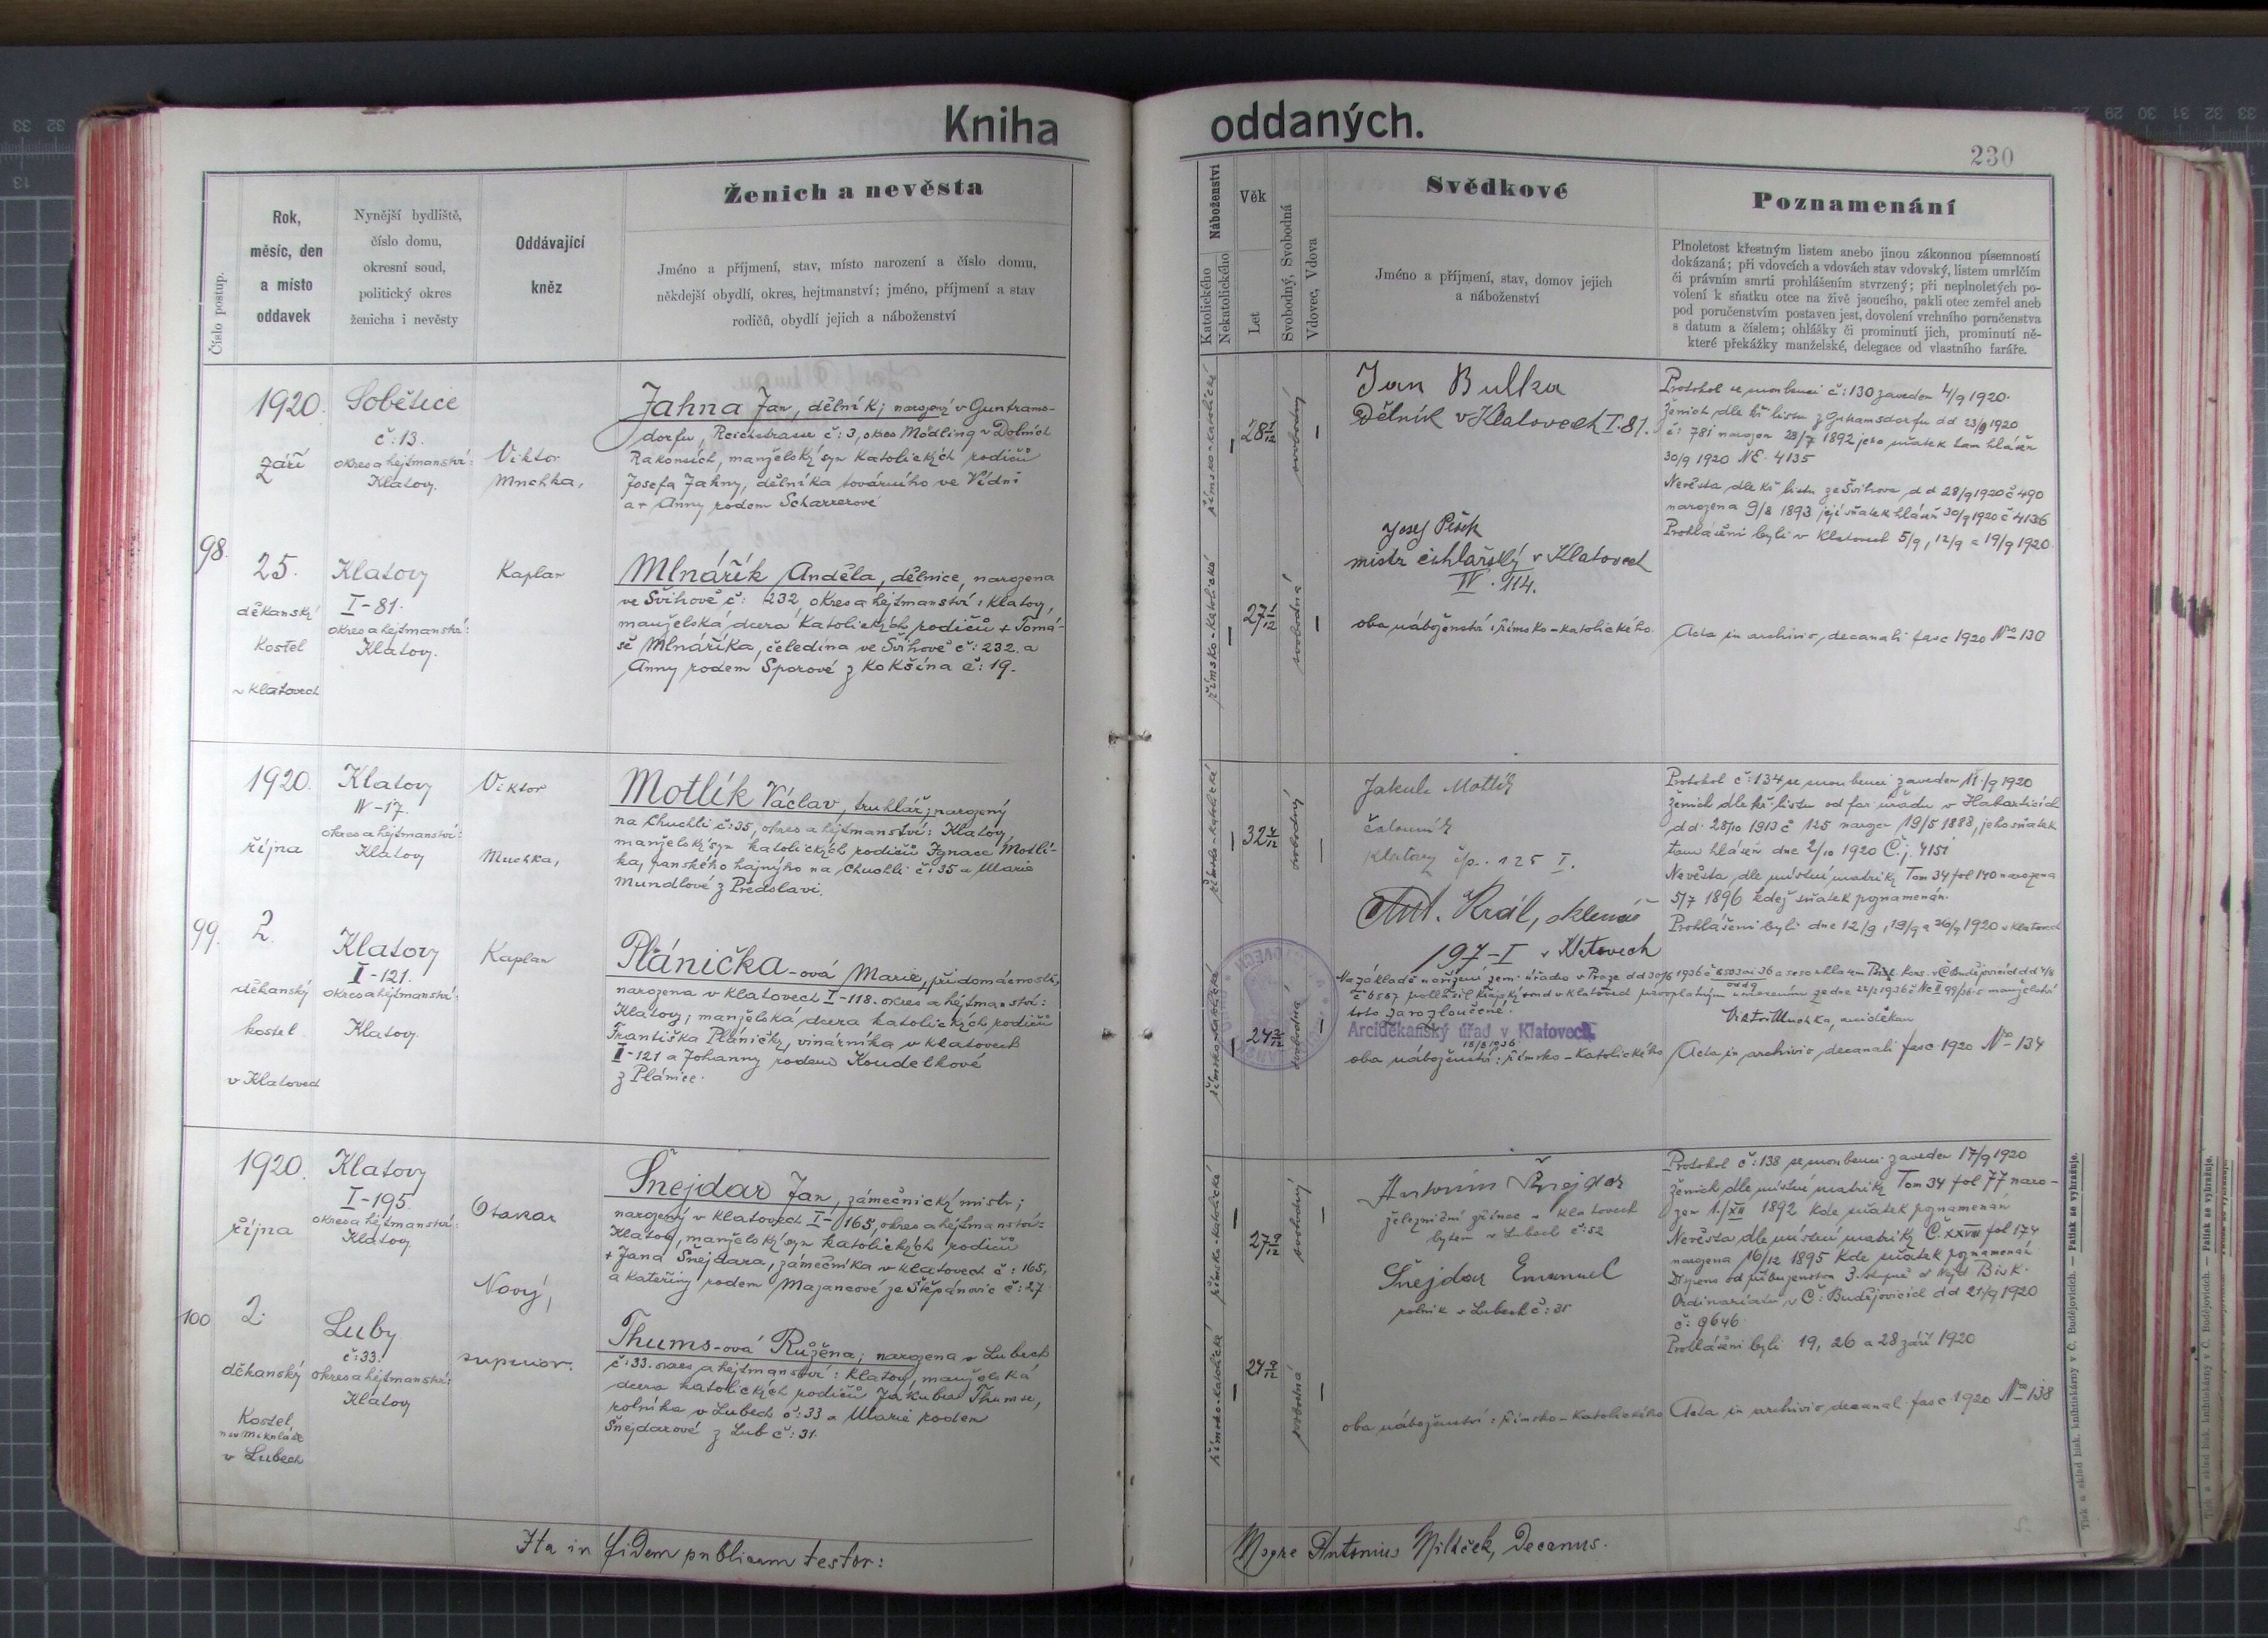 Kniha oddaných.
230
Číslo postup.
Rok,
měsíc, den
a místo
oddavek
Nynější bydliště,
číslo domu,
okresní soud,
politický okres
ženicha i nevěsty
Oddávající
kněz
Ženich a nevěsta
Jméno a příjmení, stav, místo narození a číslo domu,
někdejší obydlí, okres, hejtmanství; jméno, příjmení a stav
rodičů, obydlí jejich a náboženství
Náboženství
Katolického
Nekatolického
Věk
Let
Svobodný, Svobodná
Vdovec, Vdova
Svědkové
Jméno a příjmení, stav, domov jejich
a náboženství
Poznamenání
Plnoletost křestným listem anebo jinou zákonnou písemností
dokázaná; při vdovcích a vdovách stav vdovský, listem umrlčím
či právním smrti prohlášením stvrzený; při neplnoletých po-
volení k sňatku otce na živě jsoucího, pakli otec zemřel aneb
pod poručenstvím postaven jest, dovolení vrchního poručenstva
s datum a číslem; ohlášky či prominutí jich, prominutí ně-
které překážky manželské, delegace od vlastního faráře.
98.
1920.
září
25.
děkanský
kostel
v Klatovech
Soběšice
č: 13.
okres a hejtmanství:
Klatovy.
Klatovy
I-81.
okres a hejtmanství:
Klatovy.
Viktor
Muchka,
Kaplan
Jahna Jan, dělník; narozený v Guntrams-
dorfu, Reichstrasse č: 3, okres Mödling v Dolních
Rakousích, manželský syn katolických rodičů
Josefa Jahny, dělníka továrního ve Vídni
a + Anny rodem Scharrerové
Mlnářík Anděla, dělnice, narozena
ve Švihově č: 232, okres a hejtmanství: Klatovy,
manželská dcera katolických rodičů + Tomá-
še Mlnáříka, čeledína ve Švihově č: 232. a
Anny rodem Sporové z Kokšína č: 19.
římsko-katolické
římsko-katolické
28 1/12
27 1/12
svobodný
svobodná
Jan Bulka
Dělník v Klatovech I. 81.
Josef Pešek
mistr cihlařský v Klatovech
IV. 114.
oba náboženství: římsko-katolického.
Protokol se snoubenci č: 130 zaveden 4/9 1920.
č: 781 narozen 28/7 1892 jeho sňatek tam hlášen
30/9 1920 NE. 4135
Nevěsta dle kř listu ze Švihova dd 28/9 1920 č 490
narozena 9/8 1893 její sňatek hlášen 30/9 1920 č 4136
Prohlášeni byli v Klatovech 5/9, 12/9 a 19/9 1920.
Acta in archivio decanali fasc 1920 No 130
99.
1920.
října
2.
děkanský
kostel
v Klatovech
Klatovy
IV-17.
okres a hejtmanství:
Klatovy
Klatovy
I-121.
okres a hejtmanství:
Klatovy.
Viktor
Muchka,
Kaplan
Motlík Václav, truhlář; narozený
na Chuchli č: 35, okres a hejtmanství: Klatovy,
manželský syn katolických rodičů Ignace Motlí-
ka, panského hajného na Chuchli č: 35 a Marie
Mundlové z Předslavi.
Plánička-ová Marie, při domácnosti,
narozena v Klatovech I-118. okres a hejtmanství:
Klatovy; manželská dcera katolických rodičů
Františka Pláničky, vinárníka v Klatovech
I-121 a Johanny rodem Koudelkové
z Plánice.
římsko-katolické
římsko-katolická
32 4/12
24 2/12
svobodný
svobodná
Jakub Motlík
čalouník
Klatovy čp. 125 I.
Ant. Král, sklenář
197-I v Klatovech
toto za rozloučené.
Viktor Muchka, arciděkan
Arciděkanský úřad v Klatovech.
18/8 1936
oba náboženství: římsko-katolického
Protokol č: 134 se snoubenci zaveden 11./9 1920
ženich dle kř. listu od far úřadu v Habarticích
dd. 28/10 1913 č 125 narozen 19/5 1888, jeho sňatek
tam hlášen dne 2/10 1920 C.j. 4151
Nevěsta dle místní matriky Tom 34 fol 140 narozena
5/7 1896 kdež sňatek poznamenán.
Prohlášeni byli dne 12/9, 19/9 a 26/9 1920 v Klatovech
Acta in archivio decanali fasc. 1920 No 134
100
1920.
října
2.
děkanský
Kostel
v Lubech
Klatovy
I-195.
okres a hejtmanství:
Klatovy
Luby
č: 33.
okres a hejtmanství:
Klatovy
Otakar
Nový,
superior.
Šnejdar Jan, zámečnický mistr;
narozený v Klatovech I-165, okres a hejtmanství:
Klatovy, manželský syn katolických rodičů
+ Jana Šnejdara, zámečníka v Klatovech č: 165,
a Kateřiny rodem Mazancové ze Štěpánovic č: 27.
Thums-ová Růžena; narozena v Lubech
č: 33. okres a hejtmanství: Klatovy, manželská
dcera katolických rodičů Jakuba Thumse,
rolníka v Lubech č: 33 a Marie rodem
Šnejdarové z Lub č: 31.
římsko-katolické
římsko-katolické
27 9/12
24 9/12
svobodný
svobodná
Antonín Šnejdar
železniční zřízenec v Klatovech
bytem v Lubech č: 52
Šnejdar Emanuel
rolník v Lubech č: 31
oba náboženství: římsko-katolického
Protokol č: 138 se snoubenci zaveden 17/9 1920
ženich dle místní matriky Tom 34 fol 77 naro-
zen 1./XII 1892 kde sňatek poznamenán
Nevěsta dle místní matriky Č. XXVII fol 174
narozena 16/12 1895 kde sňatek poznamenán
Ordinariátu v Č: Budějovicích dd 21/9 1920
č: 9646.
Prohlášeni byli 19, 26 a 28 září 1920
Acta in archivio decanal. fasc. 1920 No 138
Ita in fidem publicam testor:
Antonius Miltček, Decanus.
Tisk a sklad bisk. knihtiskárny v Č. Budějovicích. — Patisk se vyhražuje.